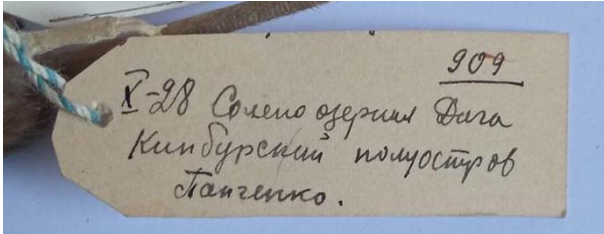 909
X-28 Солено озерная Дача
Кинбурский полуостров
Панченко.